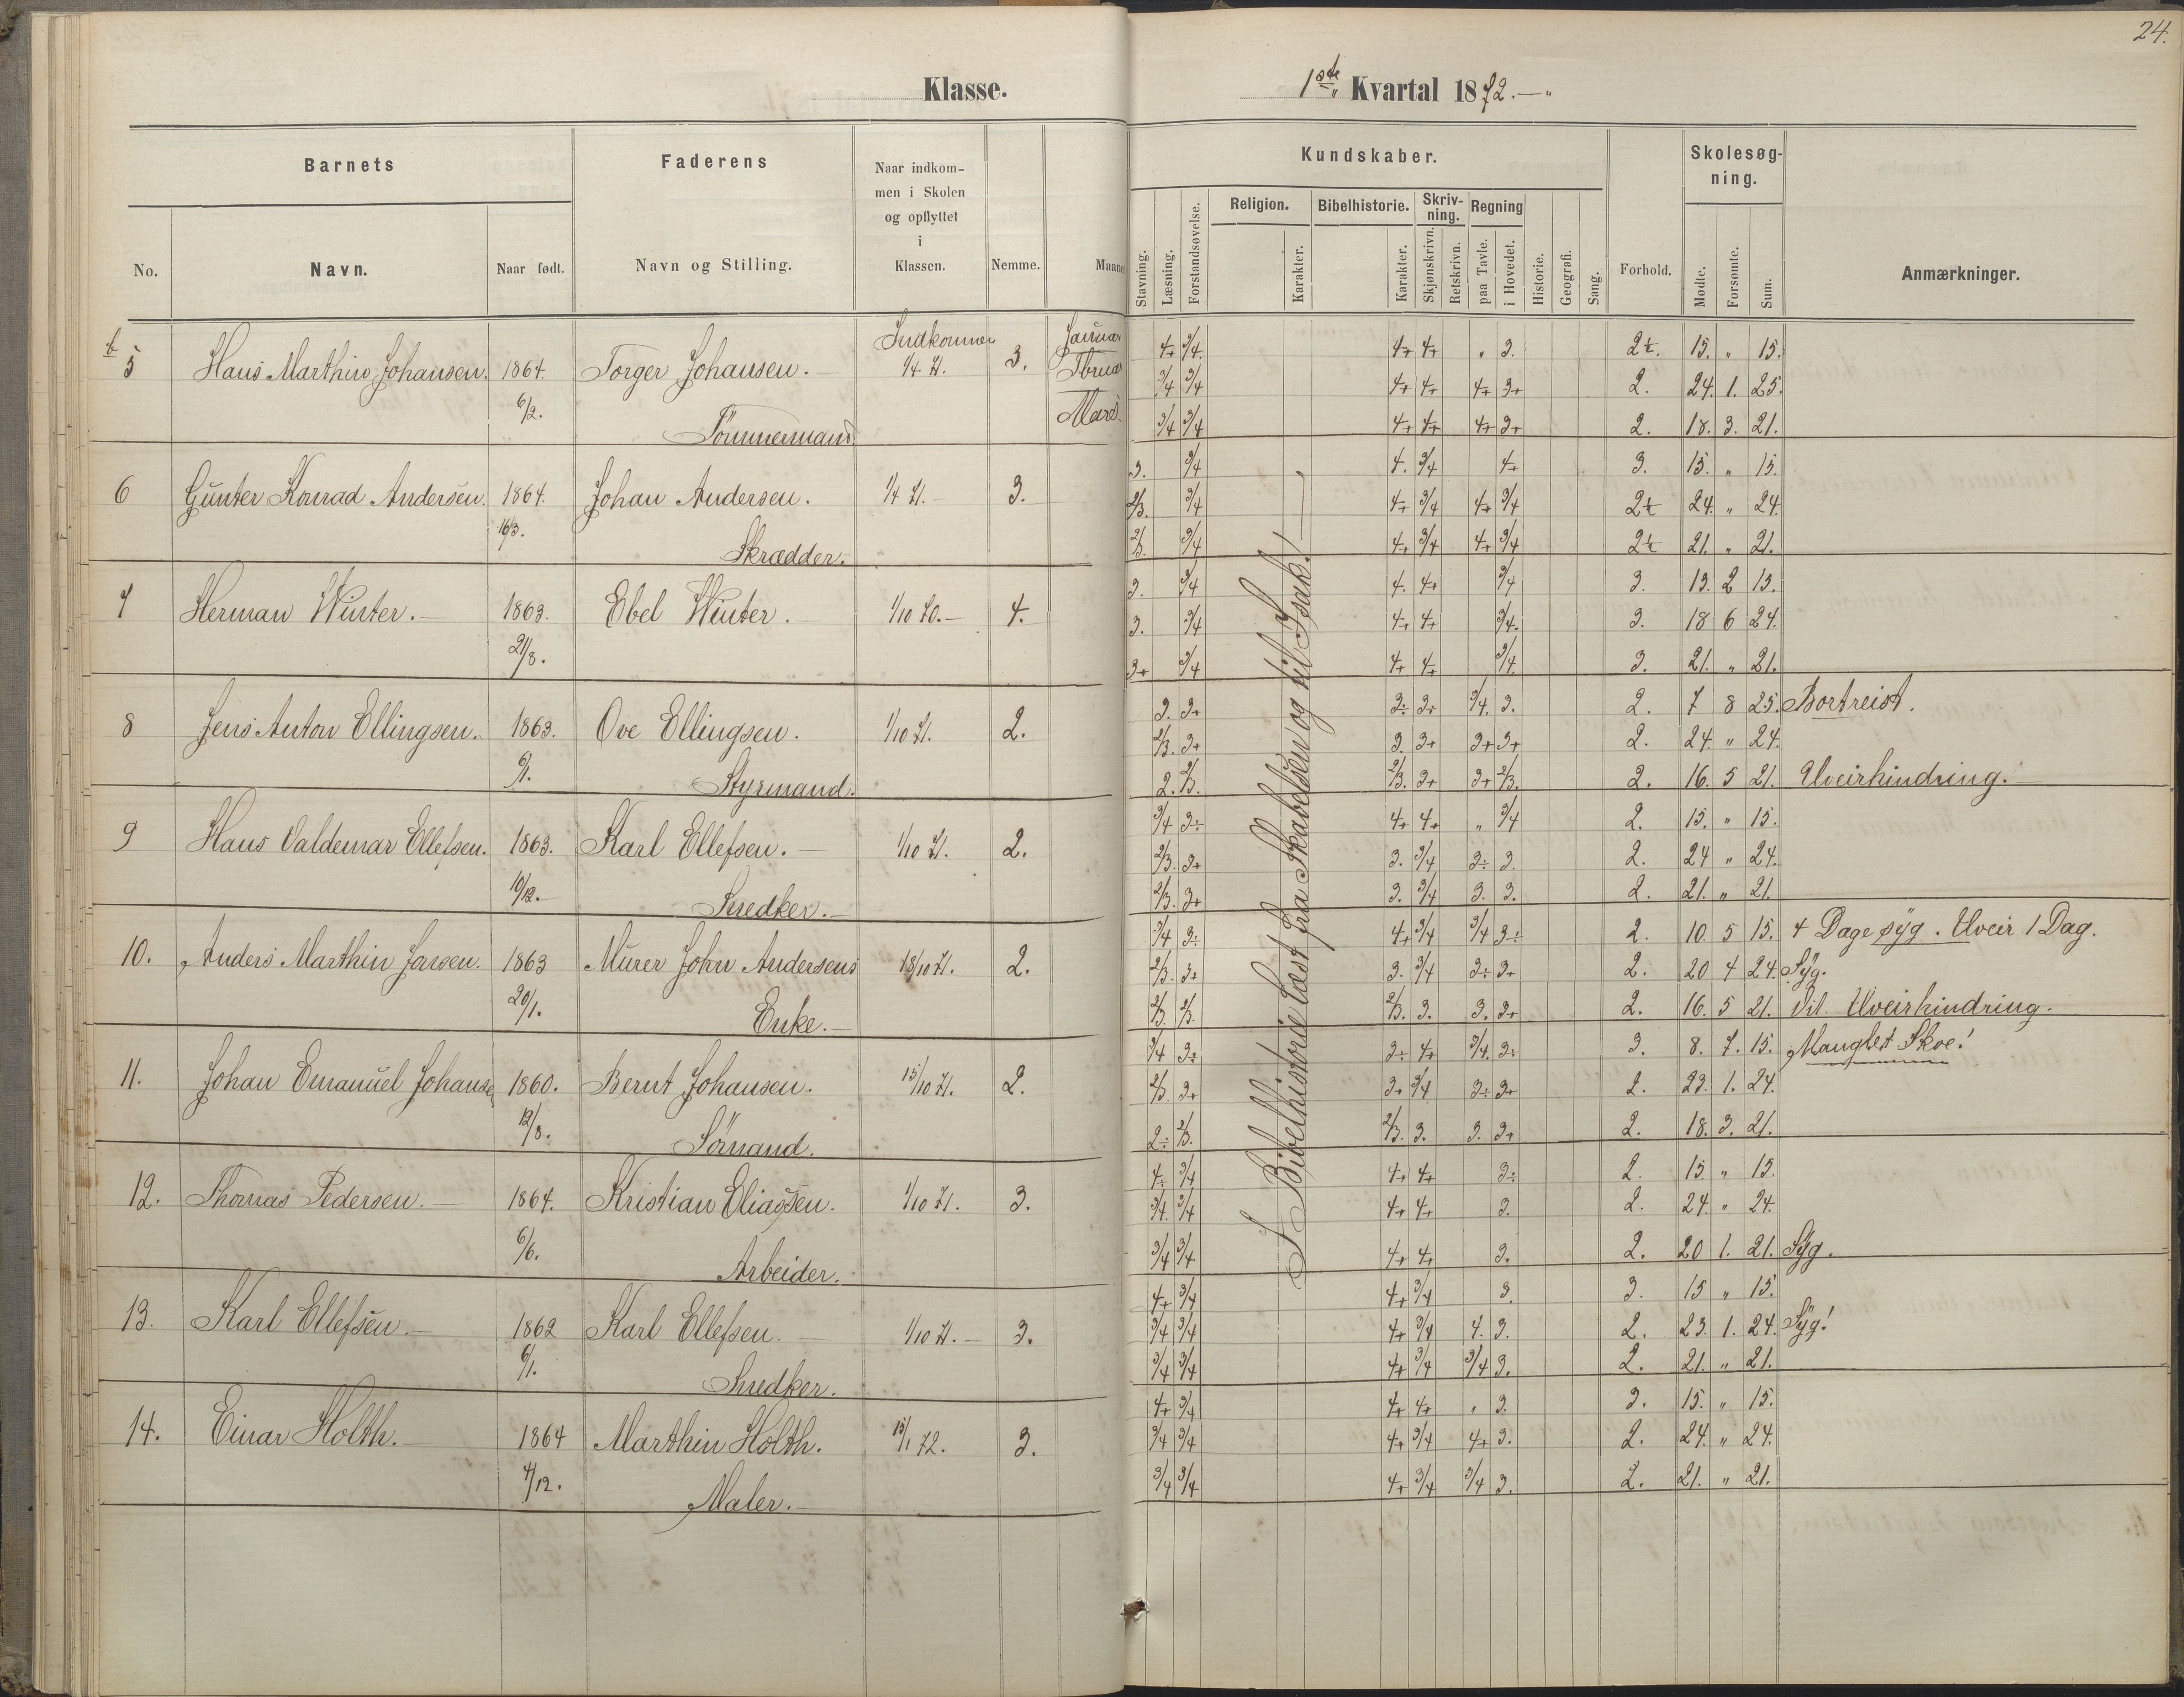 24.
Klasse.
1ste Kvartal 1872.
Barnets
Faderens
Naar indkommen i Skolen og opflyttet i Klassen.
Nemme.
Maaned
Kundskaber.
Forhold.
Skolesøgning.
Anmærkninger.
No.
Navn.
Naar født.
Navn og Stilling.
Stavning.
Læsning.
Forstandsøvelse.
Religion.
Karakter.
Bibelhistorie.
Karakter.
Skrivning.
Skjønskrivn.
Retskrivn.
Regning
paa Tavle.
i Hovedet.
Historie.
Geografi.
Sang.
Mødte.
Forsømte.
Sum.
I Bibelhistorie læst fra Skabelsen og til Isak!
5 Hans Marthin Johansen. 1864. 6/2. Torger Johansen. Tömmermand. Indkommen 1/4 71. 3.
Januar 4+ 3/4. 4+ 4+ " 3. 2÷. 15. " 15.
Fbruar 3/4 3/4 4+ 4+ 4+ 3+ 2. 24. 1. 25.
Marts 3/4 3/4 4+ 4+ 4+ 3+ 2. 18. 3. 21.
6 Gunter Konrad Andersen. 1864. 16/3. Johan Andersen. Skrædder. 1/4 71. 3.
3. 3/4 4. 3/4 4+ 3. 15. " 15.
2/3. 3/4 4+ 3/4 4+ 3/4 2÷ 24. " 24.
2/3. 3/4 4+ 3/4 4+ 3/4 2÷ 21. " 21.
7 Herman Winter. 1863. 21/8. Ebel Winter. 1/10 70. 4.
3. 3/4 4. 4+ 3/4 3. 13. 2 15.
3. 3/4 4+ 4+ 3/4. 3. 18 6 24.
3+ 3/4 4+ 4+ 3/4. 3. 21. " 21.
8 Jens Anton Ellingsen. 1863. 6/1. Ove Ellingsen. Styrmand. 1/10 71. 2.
3. 3+ 3÷ 3+ 3/4. 3. 2. 7 8 25. Bortreist.
2/3. 3+ 3. 3+ 3+ 3+ 2. 24. " 24.
2. 2/3. 2/3. 3+ 3+ 2/3. 2. 16. 5 21. Uveirhindring.
9 Hans Valdemar Ellefsen. 1863. 10/12. Karl Ellefsen. Snedker. 1/10 71. 2.
3/4 3÷ 4+ 4+ " 3/4 2. 15. " 15.
2/3. 3+ 3. 3/4 3÷ 3. 2. 24 " 24.
2/3. 3+ 3. 3/4 3. 3. 2. 21. " 21.
10. Anders Marthin Jansen. 1863 20/1. Murer John Andersens Enke. 18/10 71. 2.
3/4 3÷ 4+ 3/4 3/4 3÷ 2. 10 5 15. 4 Dage syg. Uveir 1 Dag.
2/3. 3+ 3. 3/4 3÷ 3+ 2. 20 4 24. Syg.
2/3. 2/3. 2/3. 3. 3. 3+ 2. 16. 5 21. Uveirhindring.
11. Johan Emanuel Johansen 1860. 12/8. Bernt Johansen. Sömand. 15/10 71. 2.
3/4 3÷ 3÷ 4+ 3/4. 3÷ 3. 8. 7. 15. Manglet Skoe!
2/3. 3+ 3+ 3/4 3÷ 3+ 2. 23. 1. 24.
2÷ 2/3. 2/3. 3. 3. 3+ 2. 18. 3. 21.
12. Thomas Pedersen. 1864. 6/6. Kristian Eliassen. Arbeider. 1/10 71. 3.
4÷ 3/4 4+ 4+ 3÷ 2. 15. " 15.
3/4. 3/4 4+ 4+ 3. 2. 24. " 24.
3/4 3/4 4+ 4+ 3. 2. 20 1. 21. Syg.
13. Karl Ellefsen. 1862 6/1. Karl Ellefsen. Snedker. 1/10 71. 3.
4+ 3/4 4+ 3/4 3. 3. 15 " 15.
3/4 3/4 4+ 3/4 4. 3. 2. 23. 1. 24. Syg!
3/4 3/4 4+ 3/4 3/4 3. 2. 21. " 21.
14. Einar Holth. 1864 4/12. Marthin Holth. Maler. 15/1 72. 3.
4+ 3/4 4+ 4+ " 3. 3. 15. " 15.
3/4 3/4 4+ 3/4 4+ 3. 2. 24. " 24.
3/4 3/4 4+ 3/4 3/4 3. 2. 21. " 21.